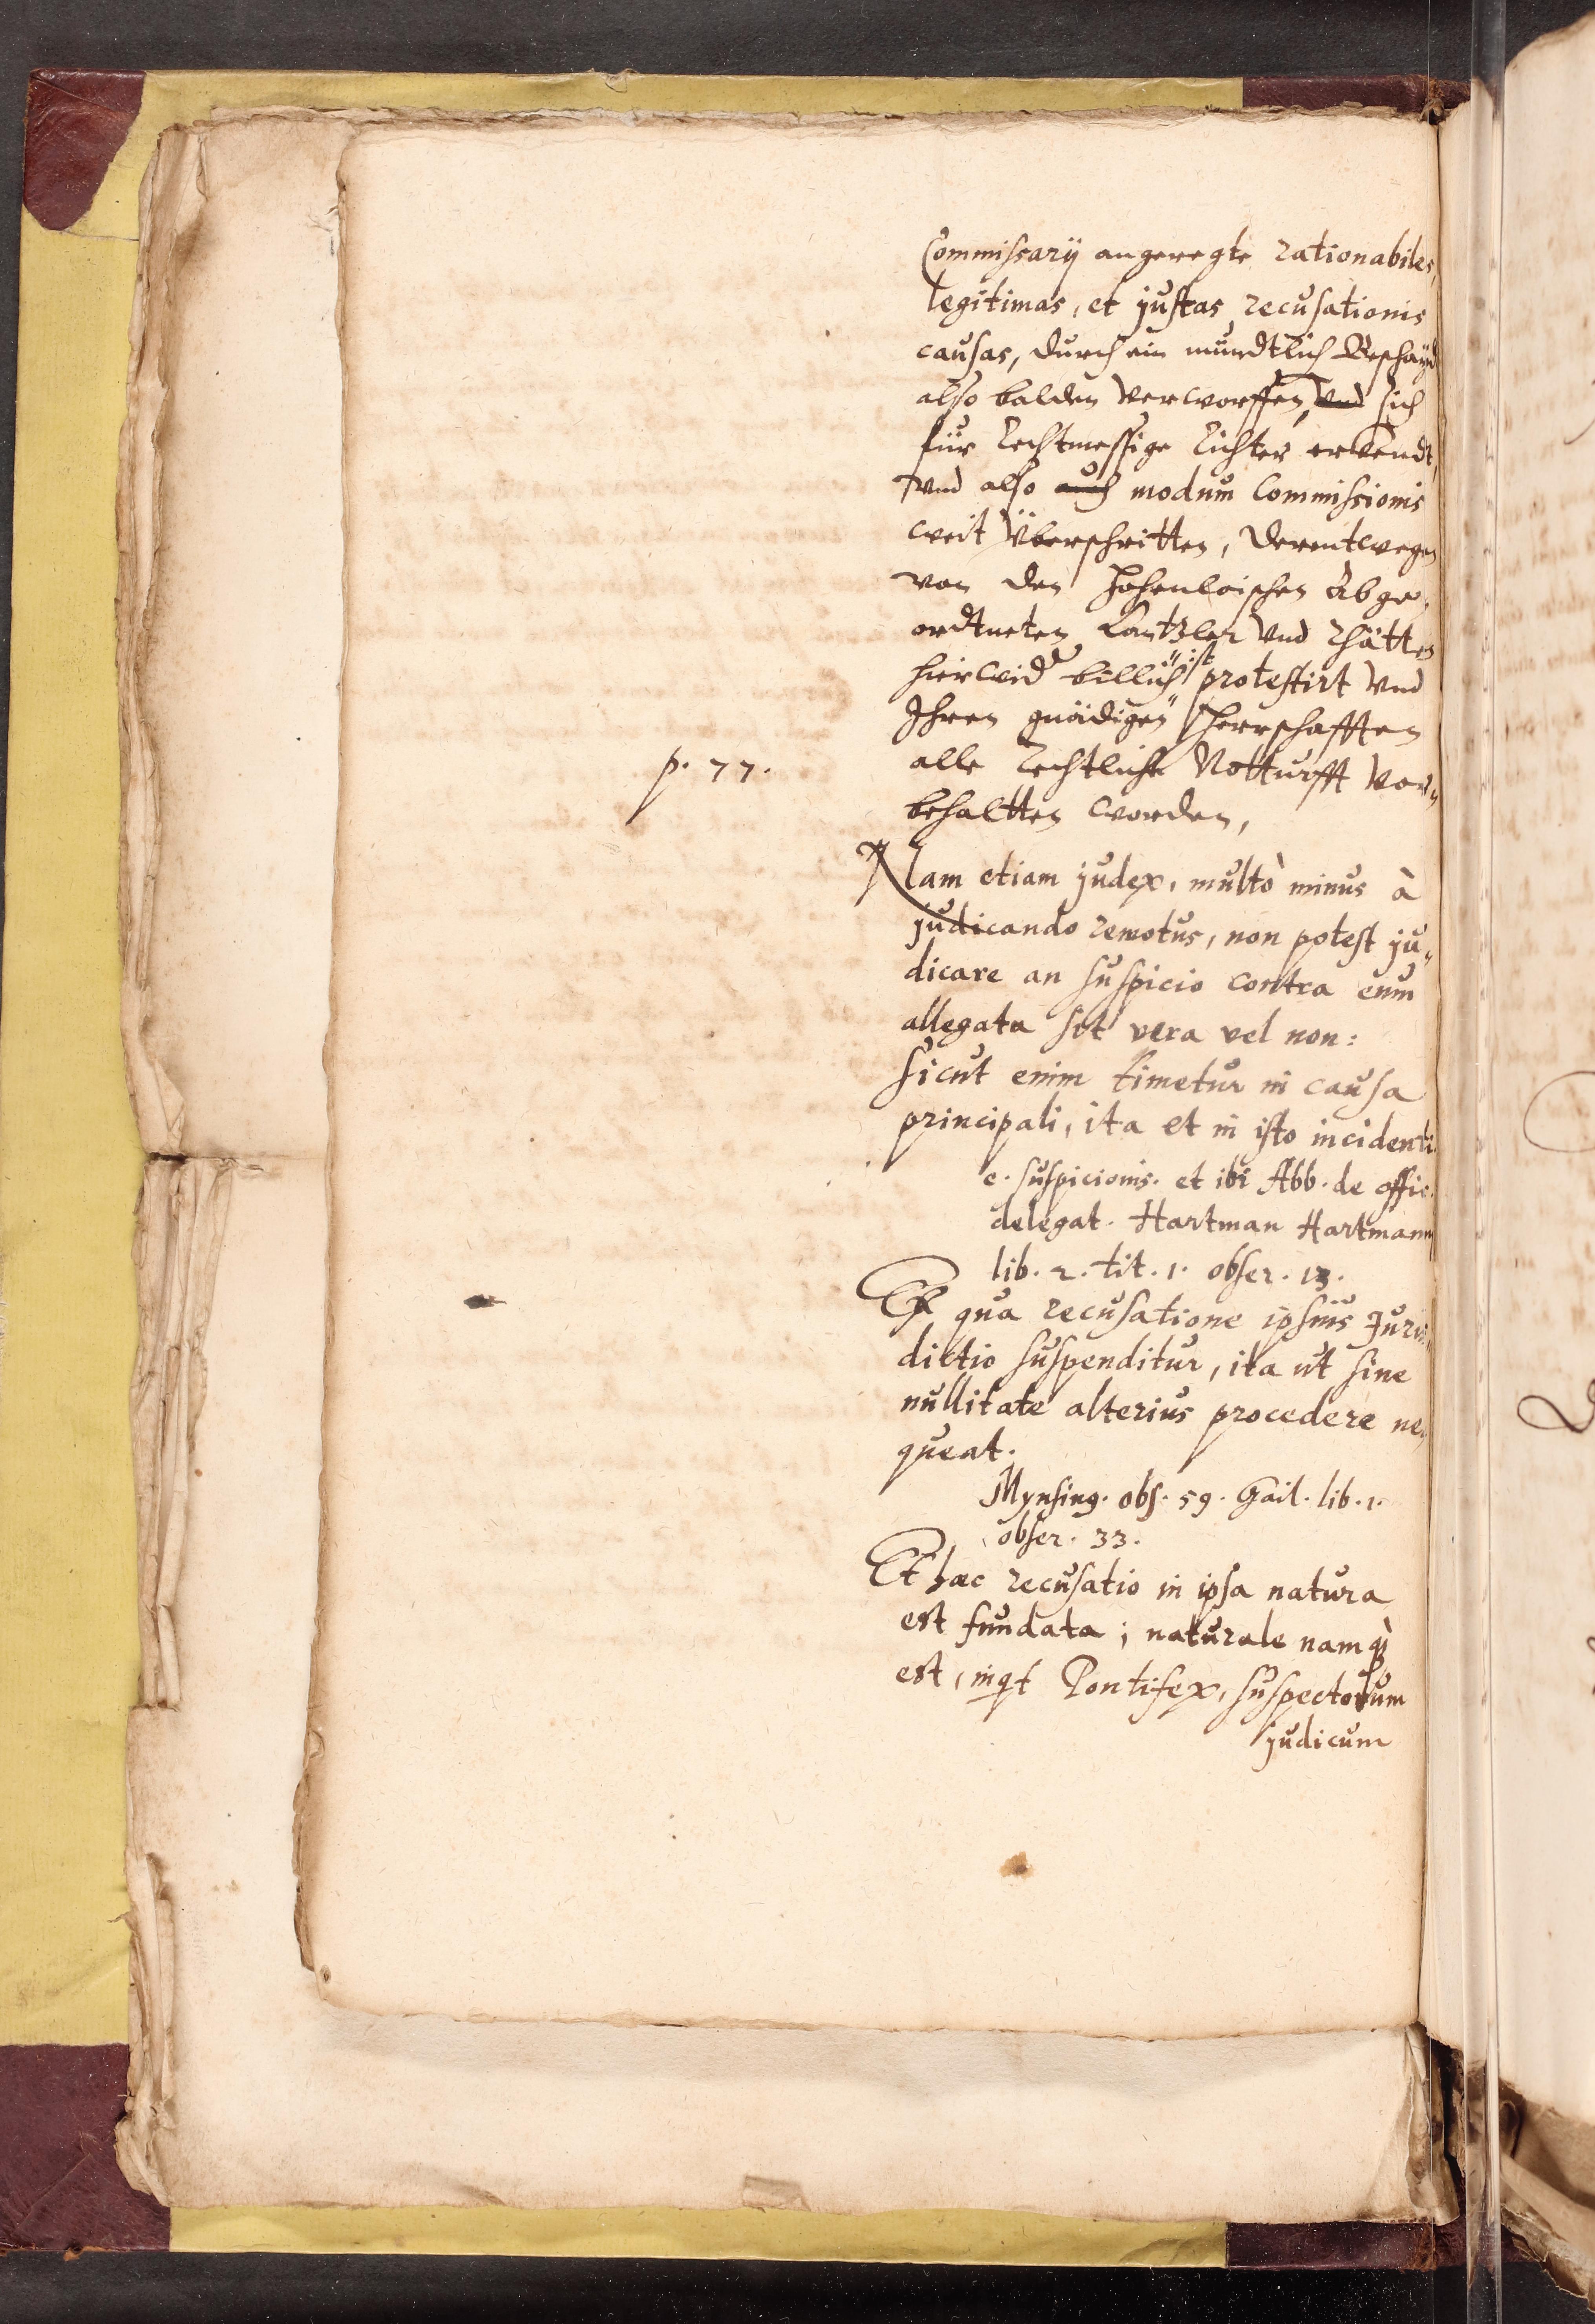 Commissarij angeregte rationabiles,
legitimas, et justas recusationis
causas, durch ein mündtlich Beschaydt
also balden verworffen, vnd sich
für rechtmessige Richter erkendt,
vnd also auch modum Commissionis
weit überschritten, derentwegen
von den Hohenloischen Abge„
ordtneten Cantzler vnd Rhätten
hierwid billich ist protestirt vnd
Ihren gnädigen Herrschafften
p. 77.
alle rechtliche Notturfft vor„
behaltten worden,
Nam etiam judex, multò minus à
judicando remotus, non potest ju„
dicare an suspicio contra eum
allegata sit vera vel non:
sicut enim timetur in causa
principali, ita et in isto incidenti.
c. suspicionis. et ibi Abb. de offic.
delegat. Hartman Hartmann
lib. 2. tit. 1. obser. 13.
Ex qua recusatione ipsius Juris„
dictio suspenditur, ita ut sine
nullitate alterius procedere ne„
queat.
Mynsing. obs. 59. Gail. lib. 1.
obser. 33.
Et haec recusatio in ipsa natura
est fundata; naturale namq̀
est, inqt Pontifex, suspectorum
judicum